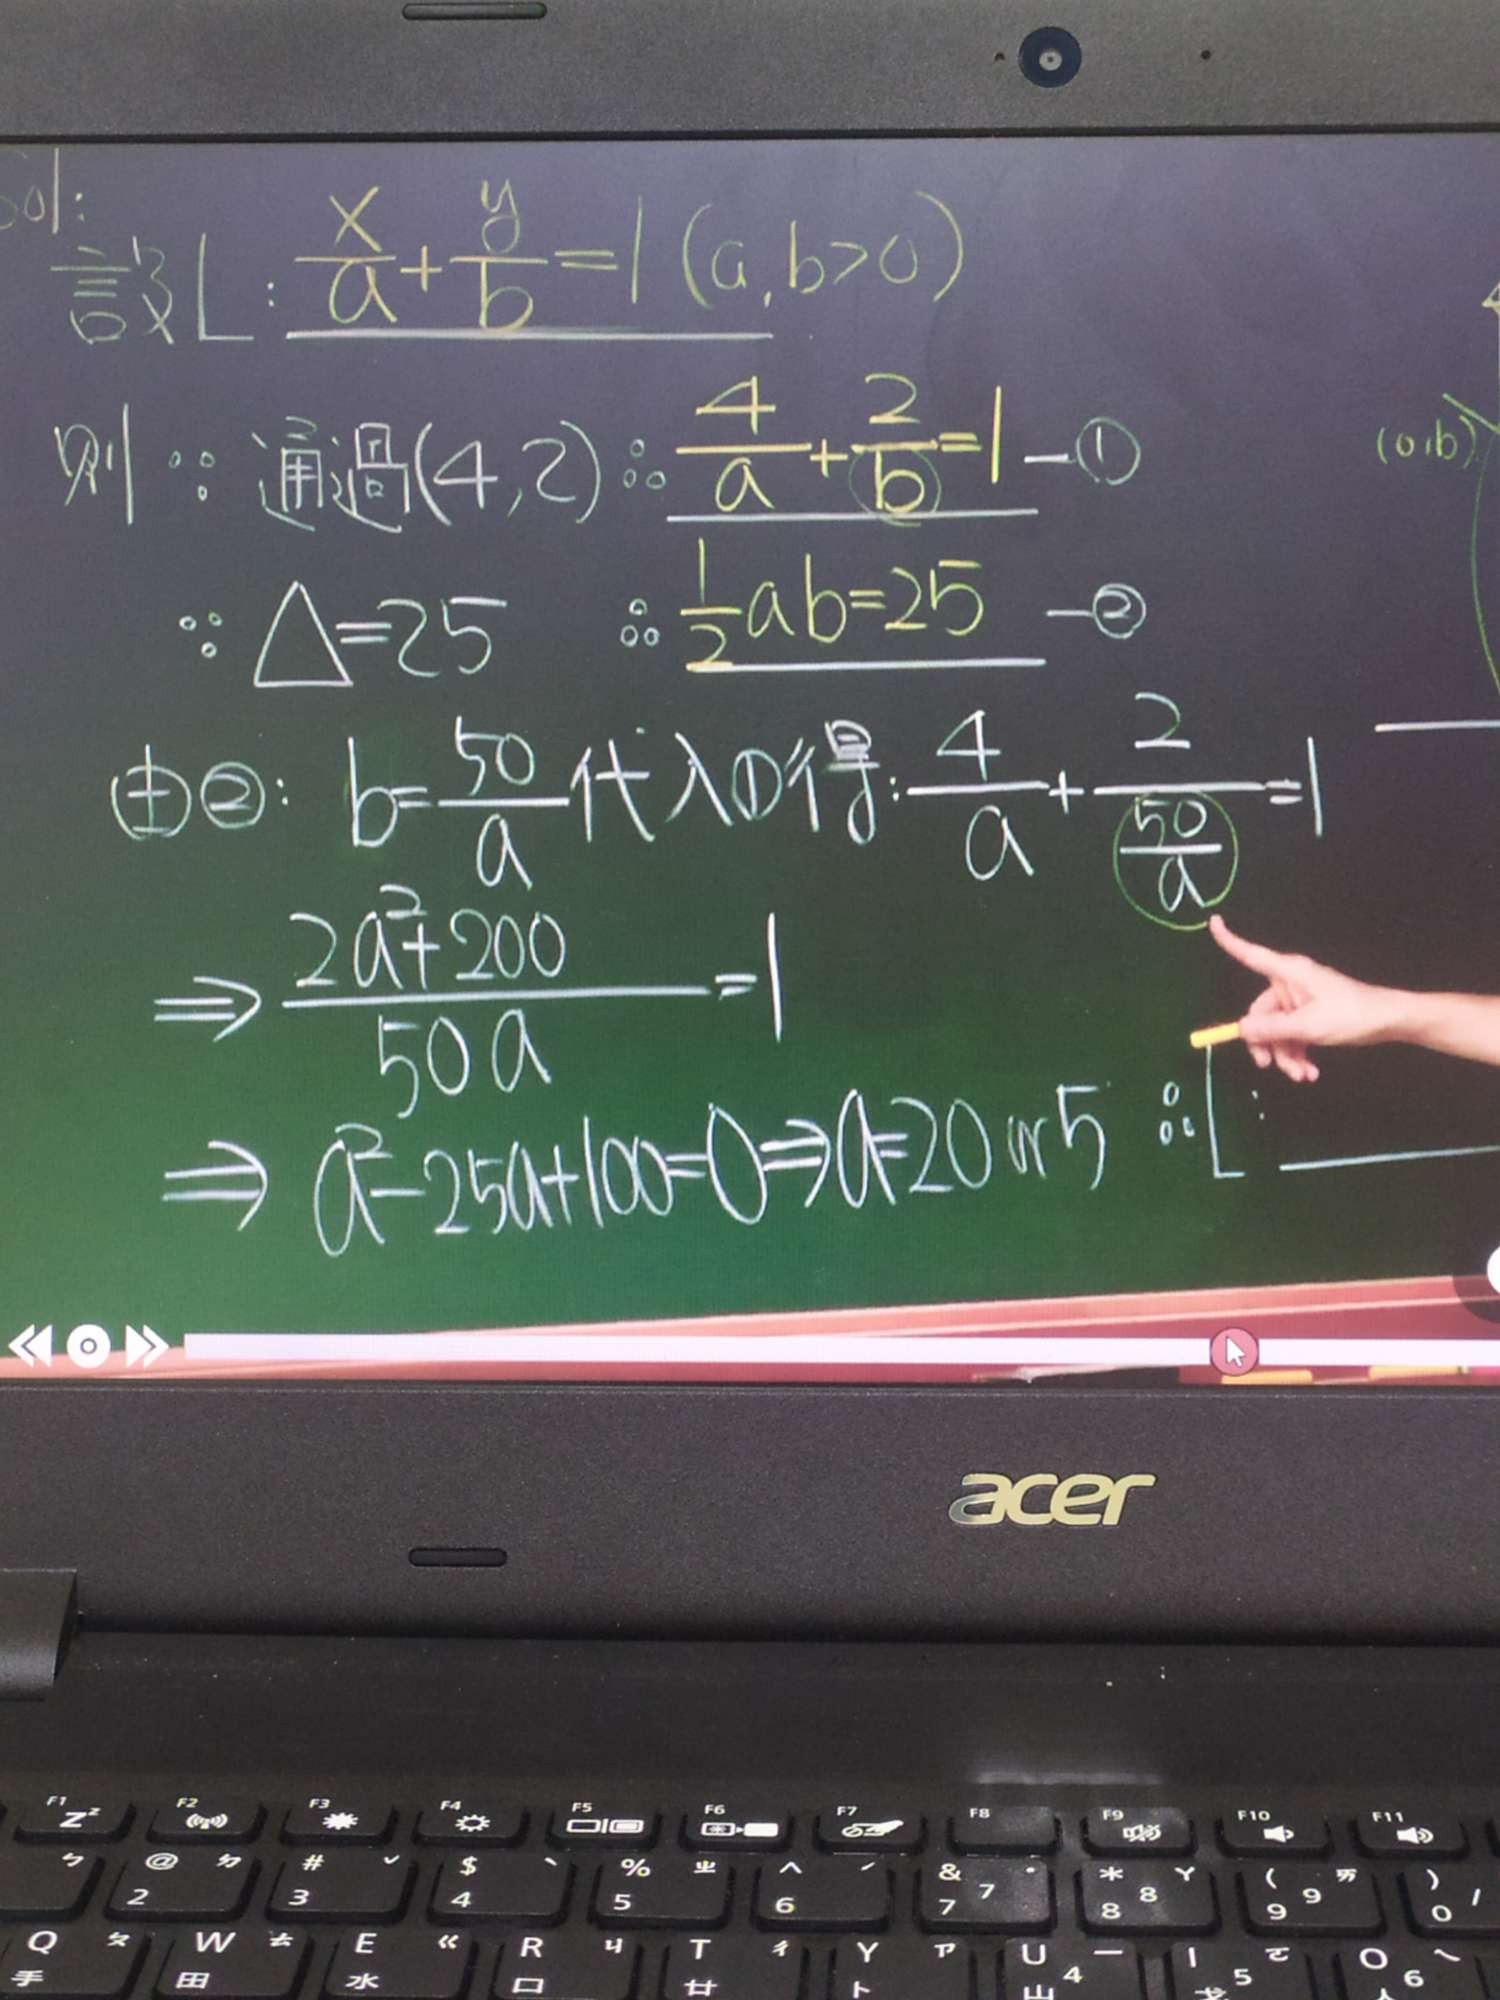 sol:
設L: x/a + y/b = 1 (a,b>0)
則 ∵ 通過(4,2) ∴ 4/a + 2/b = 1 —①
(0,b)
∵ △=25 ∴ 1/2 ab=25 —②
由②: b= 50/a 代入①得: 4/a + 2/(50/a) = 1
⇒ (2a²+200)/50a = 1
⇒ a²-25a+100=0 ⇒ a=20 or 5 ∴ L:
acer
F1 Zz F2 F3 F4 F5 F6 F7 F8 F9 F10 F11
ㄅ @ 2 ㄉ # 3 ˇ $ 4 ˋ % 5 ㄓ ^ 6 ˊ & 7 7 ˙ * 8 8 ㄚ ( 9 9 ㄞ ) 0 /
Q ㄆ 手 W ㄊ 田 E ㄍ 水 R ㄐ 口 T ㄔ 廿 Y ㄗ 卜 U ㄧ 4 山 I ㄛ 5 戈 O ㄟ 6 人